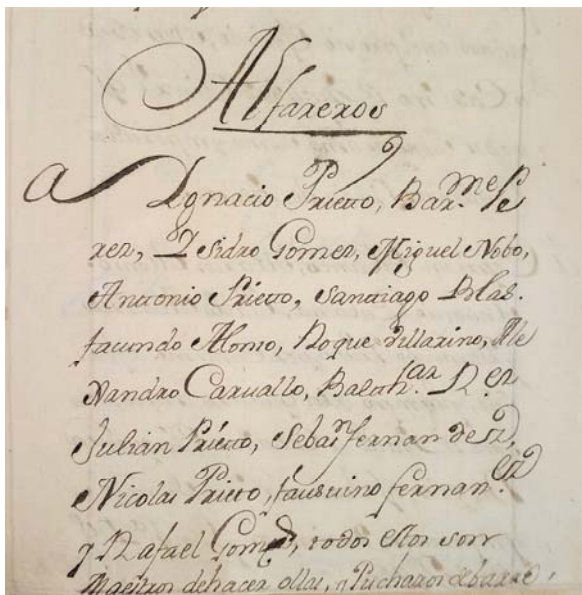 Alfareros
a Ygnacio Prieto, Bar.me Pe
rez, Ysidro Gomez, Miguel Nobo,
Anttonio Prietto, Santiago Blas.
facundo Alonso, Roque Villarino, Ale
Xandro Carvallo, Balth.ar R.ez
Julian Prietto, Seba.n fernandez,
Nicolas Prieto, faustino fernan.ez
y Rafael Gomez, todos estos son
Maestros de hacer ollas, y Pucharos de barro,